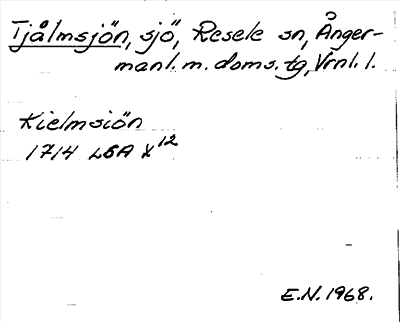 Tjålmsjön, sjö, Resele sn, Ånger-
manl. m. doms. tg, Vrnl. l.
Kielmsiön
1714 LSA X12
E.N. 1968.